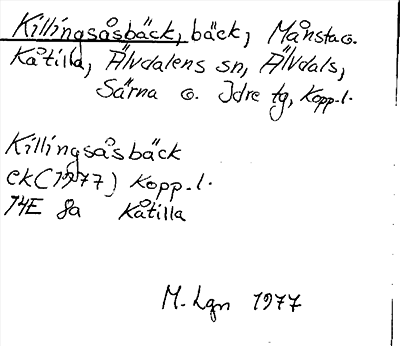 Killingsåsbäck, bäck, Månsta o.
Kåtilla, Älvdalens sn, Älvdals,
Särna o. Idre tg, Kopp. l.
Killingsåsbäck
ek (1977) Kopp. l.
14E 8a Kåtilla
M. Lgn 1977